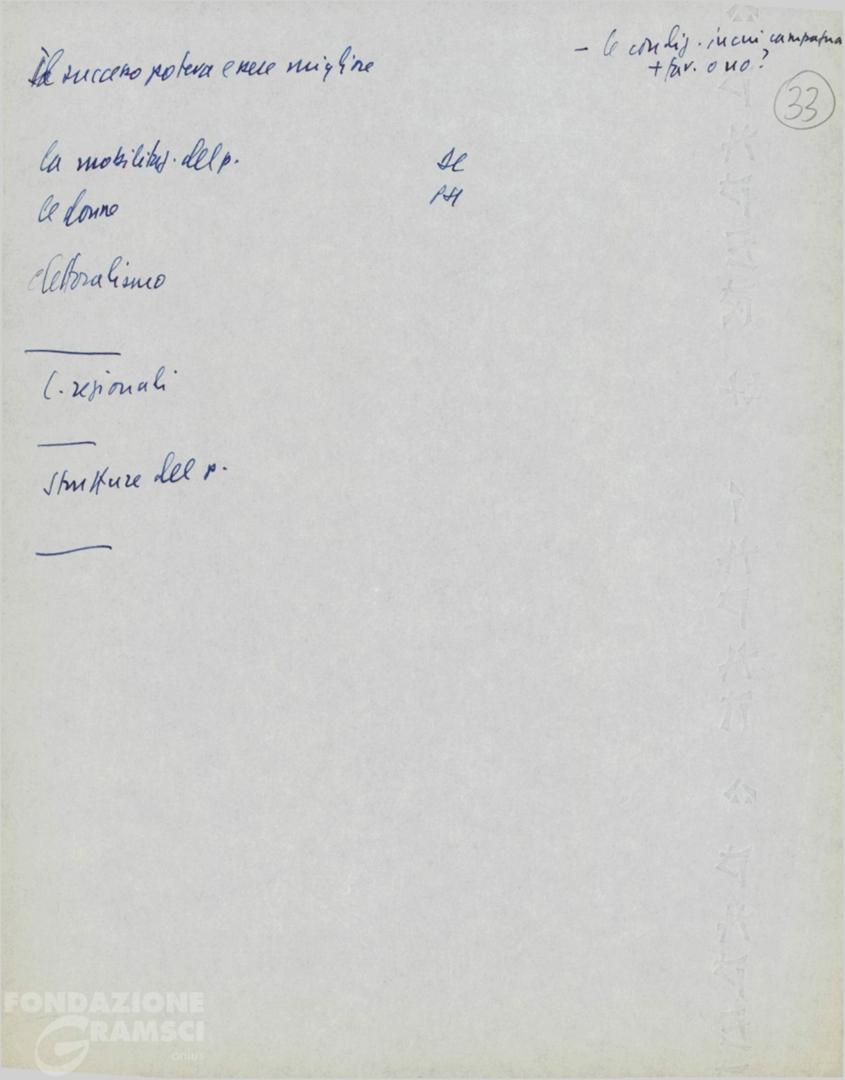 Il successo poteva essere migliore
- le condiz. in cui campagna
+ fav. o no?
33
la mobilitaz. del p.
DC
le donne
PSI
elettoralismo
C. regionali
strutture del p.
FONDAZIONE
GRAMSCI
onlus